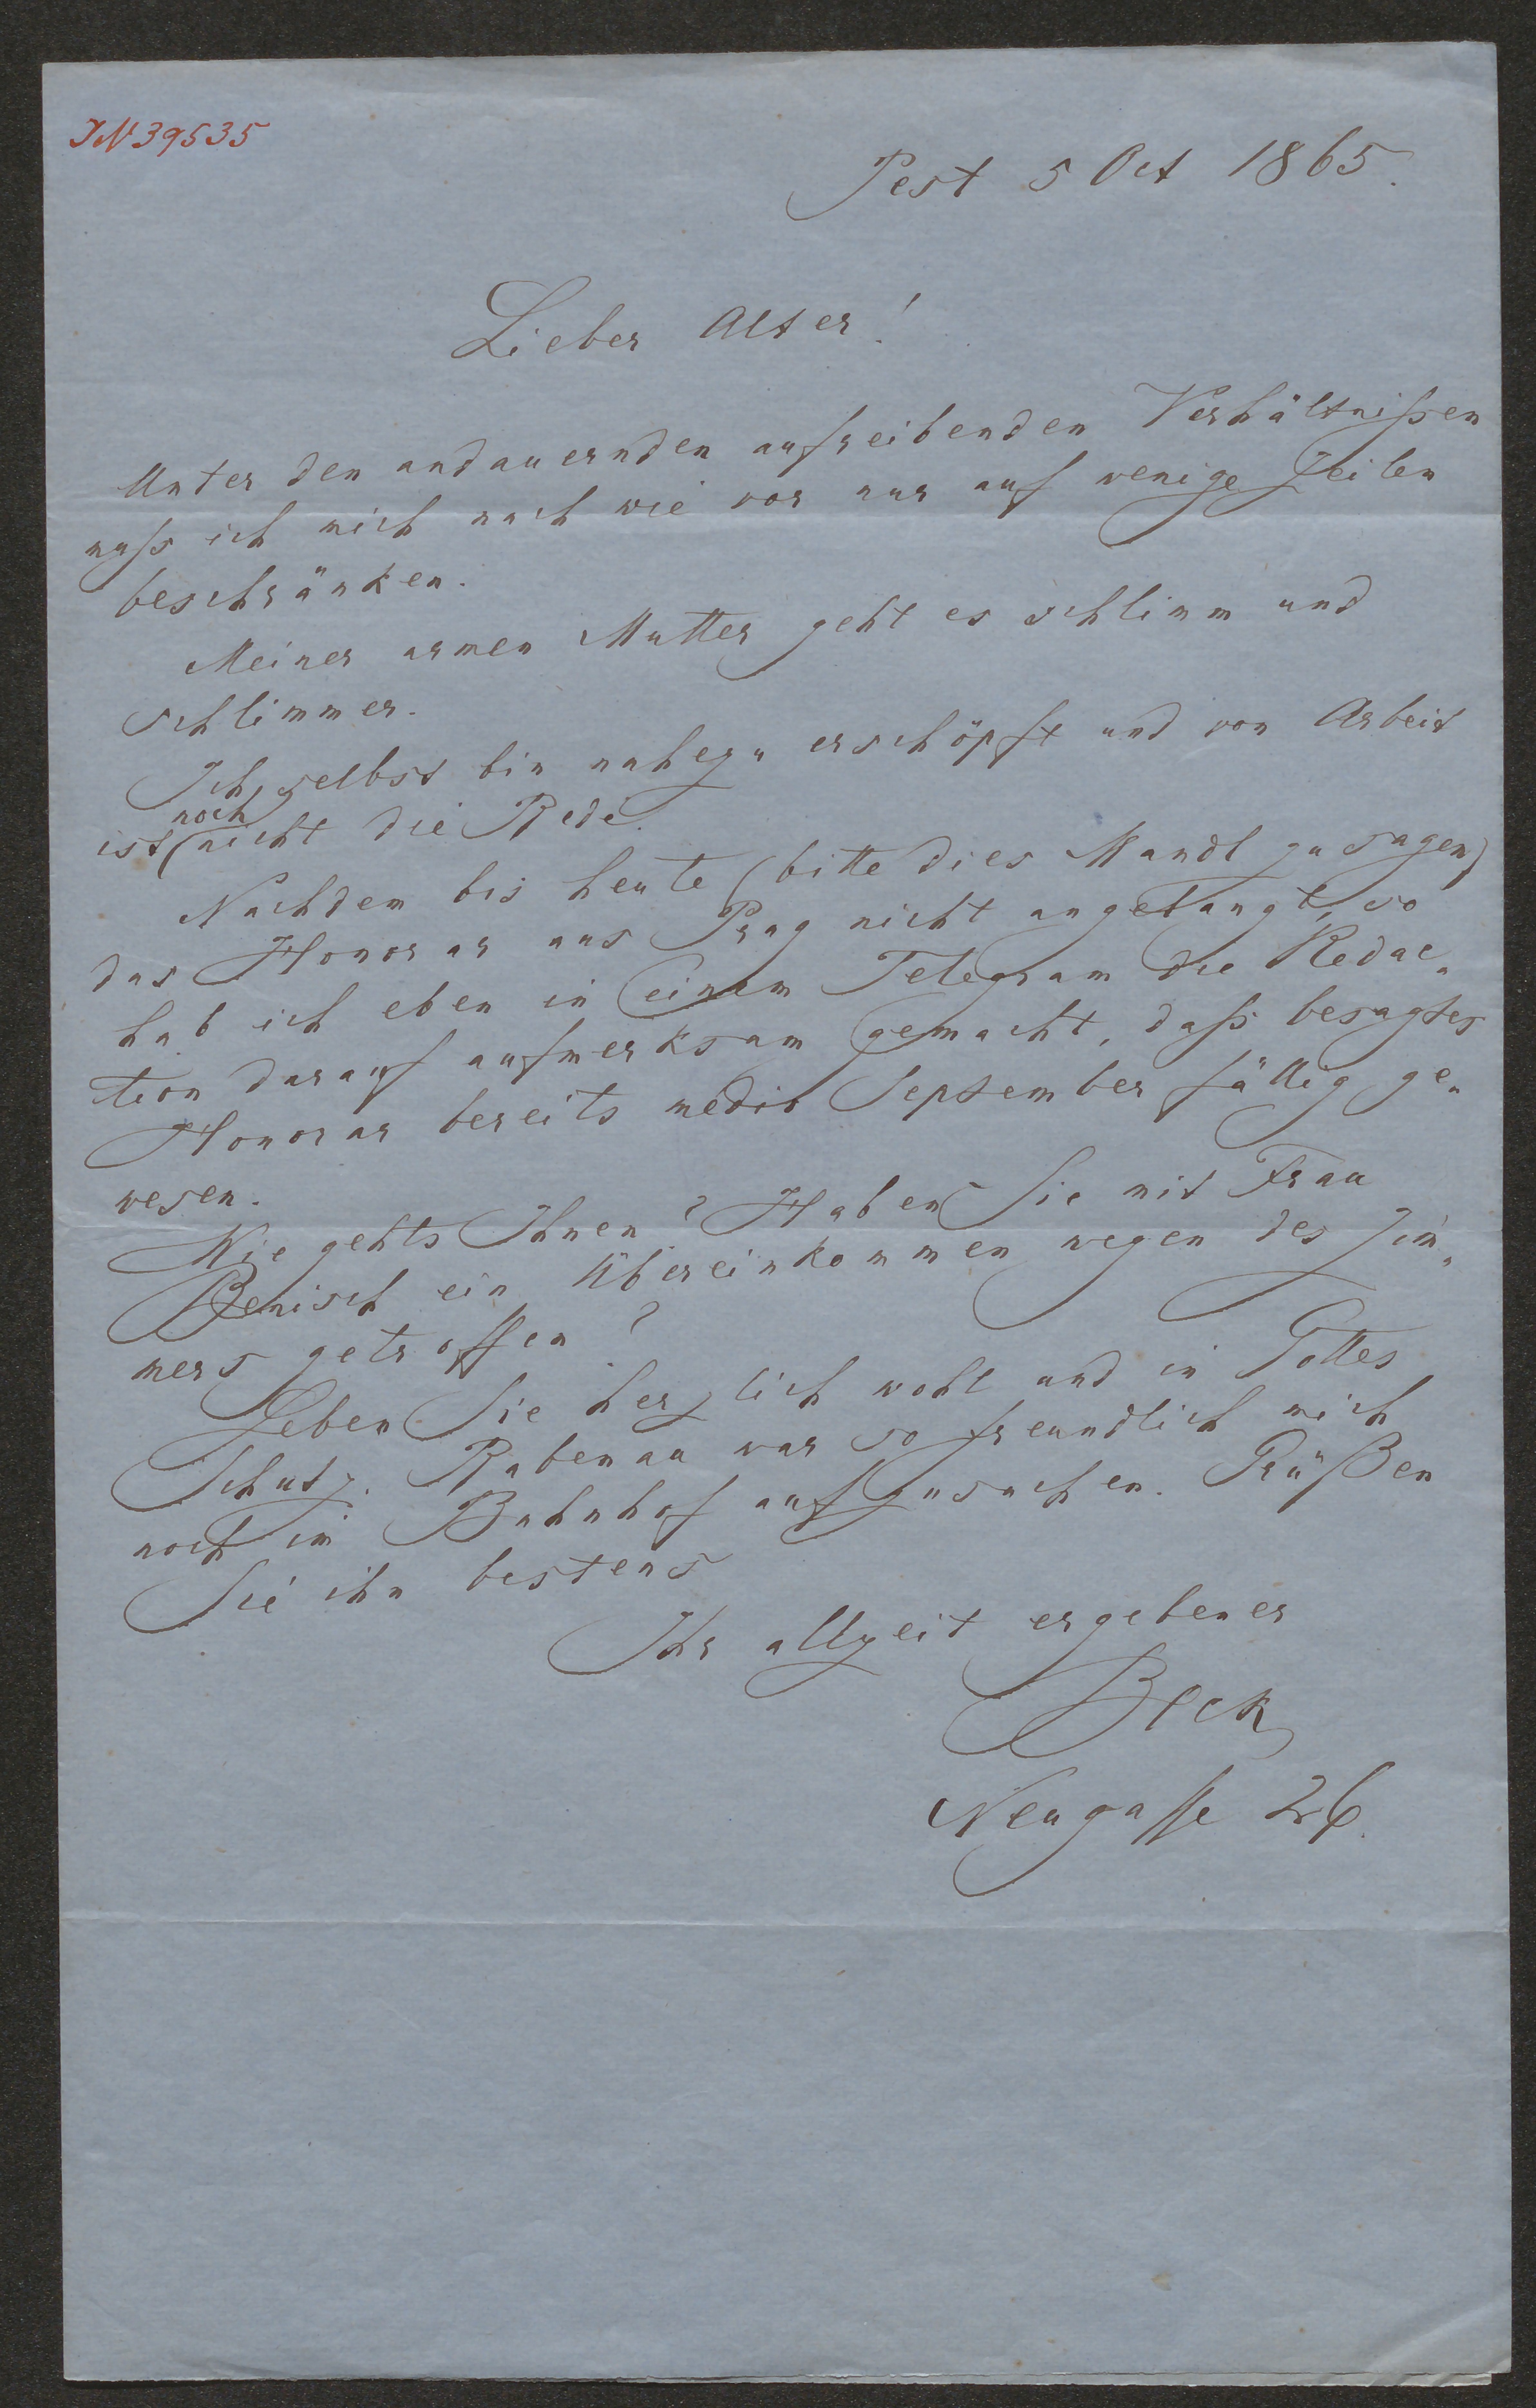 IN 39535
Pest 5 Oct 1865.
Lieber Alter!
Unter den andauernden aufreibenden Verhältnißen
muß ich mich nach wie vor nur auf wenige Zeilen
beschränken.
Meiner armen Mutter geht es schlimm und
schlimmer.
Ich selbst bin nahezu erschöpft und von Arbeit
noch
ist nicht die Rede.
Nachdem bis heute (bitte dies Mandl zu sagen)
das Honorar aus Prag nicht angelangt, so
hab ich eben in einem Telegram die Redac„
tion darauf aufmerksam gemacht, daß besagtes
Honorar bereits medio September fällig ge„
wesen.
Wie gehts Ihnen? Haben Sie mit Frau
Benisch ein Übereinkommen wegen des Zim„
mers getroffen?
Leben Sie herzlich wohl und in Gottes
Schutz. Rabenau war so freundlich mich
noch im Bahnhof aufzusuchen. Grüßen
Sie ihn bestens
Ihr allzeit ergebener
Beck
Neugasse 26.